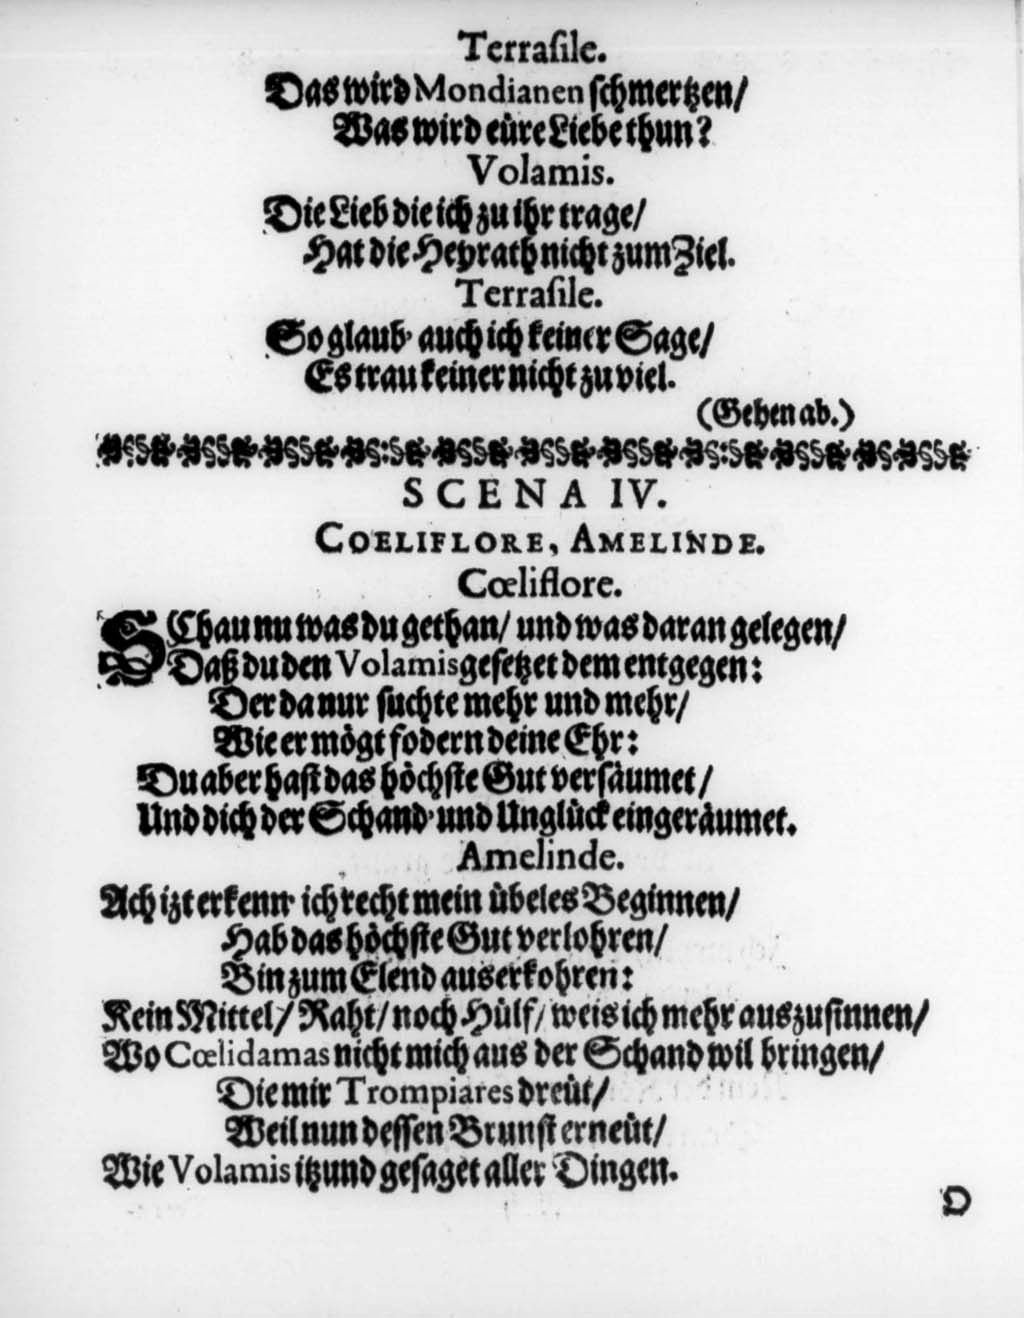 Terraſile.
Das wird Mondianen ſchmertzen/
Was wird eüre Liebe thun?
Volamis.
Die Lieb die ich zu ihr trage/
Hat die Heyrath nicht zum Ziel.
Terraſile.
So glaub' auch ich keiner Sage/
Es trau keiner nicht zu viel.
(Gehen ab.)
SCENA IV.
COELIFLORE, AMELINDE.
Cœliflore.
SChau nu was du gethan/ und was daran gelegen/
Daß du den Volamis geſetzet dem entgegen:
Der da nur ſuchte mehr und mehr/
Wie er mögt fodern deine Ehr:
Du aber haſt das höchſte Gut verſäumet/
Und dich der Schand' und Unglück eingeräumet.
Amelinde.
Ach izt erkenn' ich recht mein übeles Beginnen/
Hab das höchſte Gut verlohren/
Bin zum Elend auserkohren:
Kein Mittel/ Raht/ noch Hülf/ weis ich mehr auszuſinnen/
Wo Cœlidamas nicht mich aus der Schand wil bringen/
Die mir Trompiares dreüt/
Weil nun deſſen Brunſt erneüt/
Wie Volamis itzund geſaget aller Dingen.
D